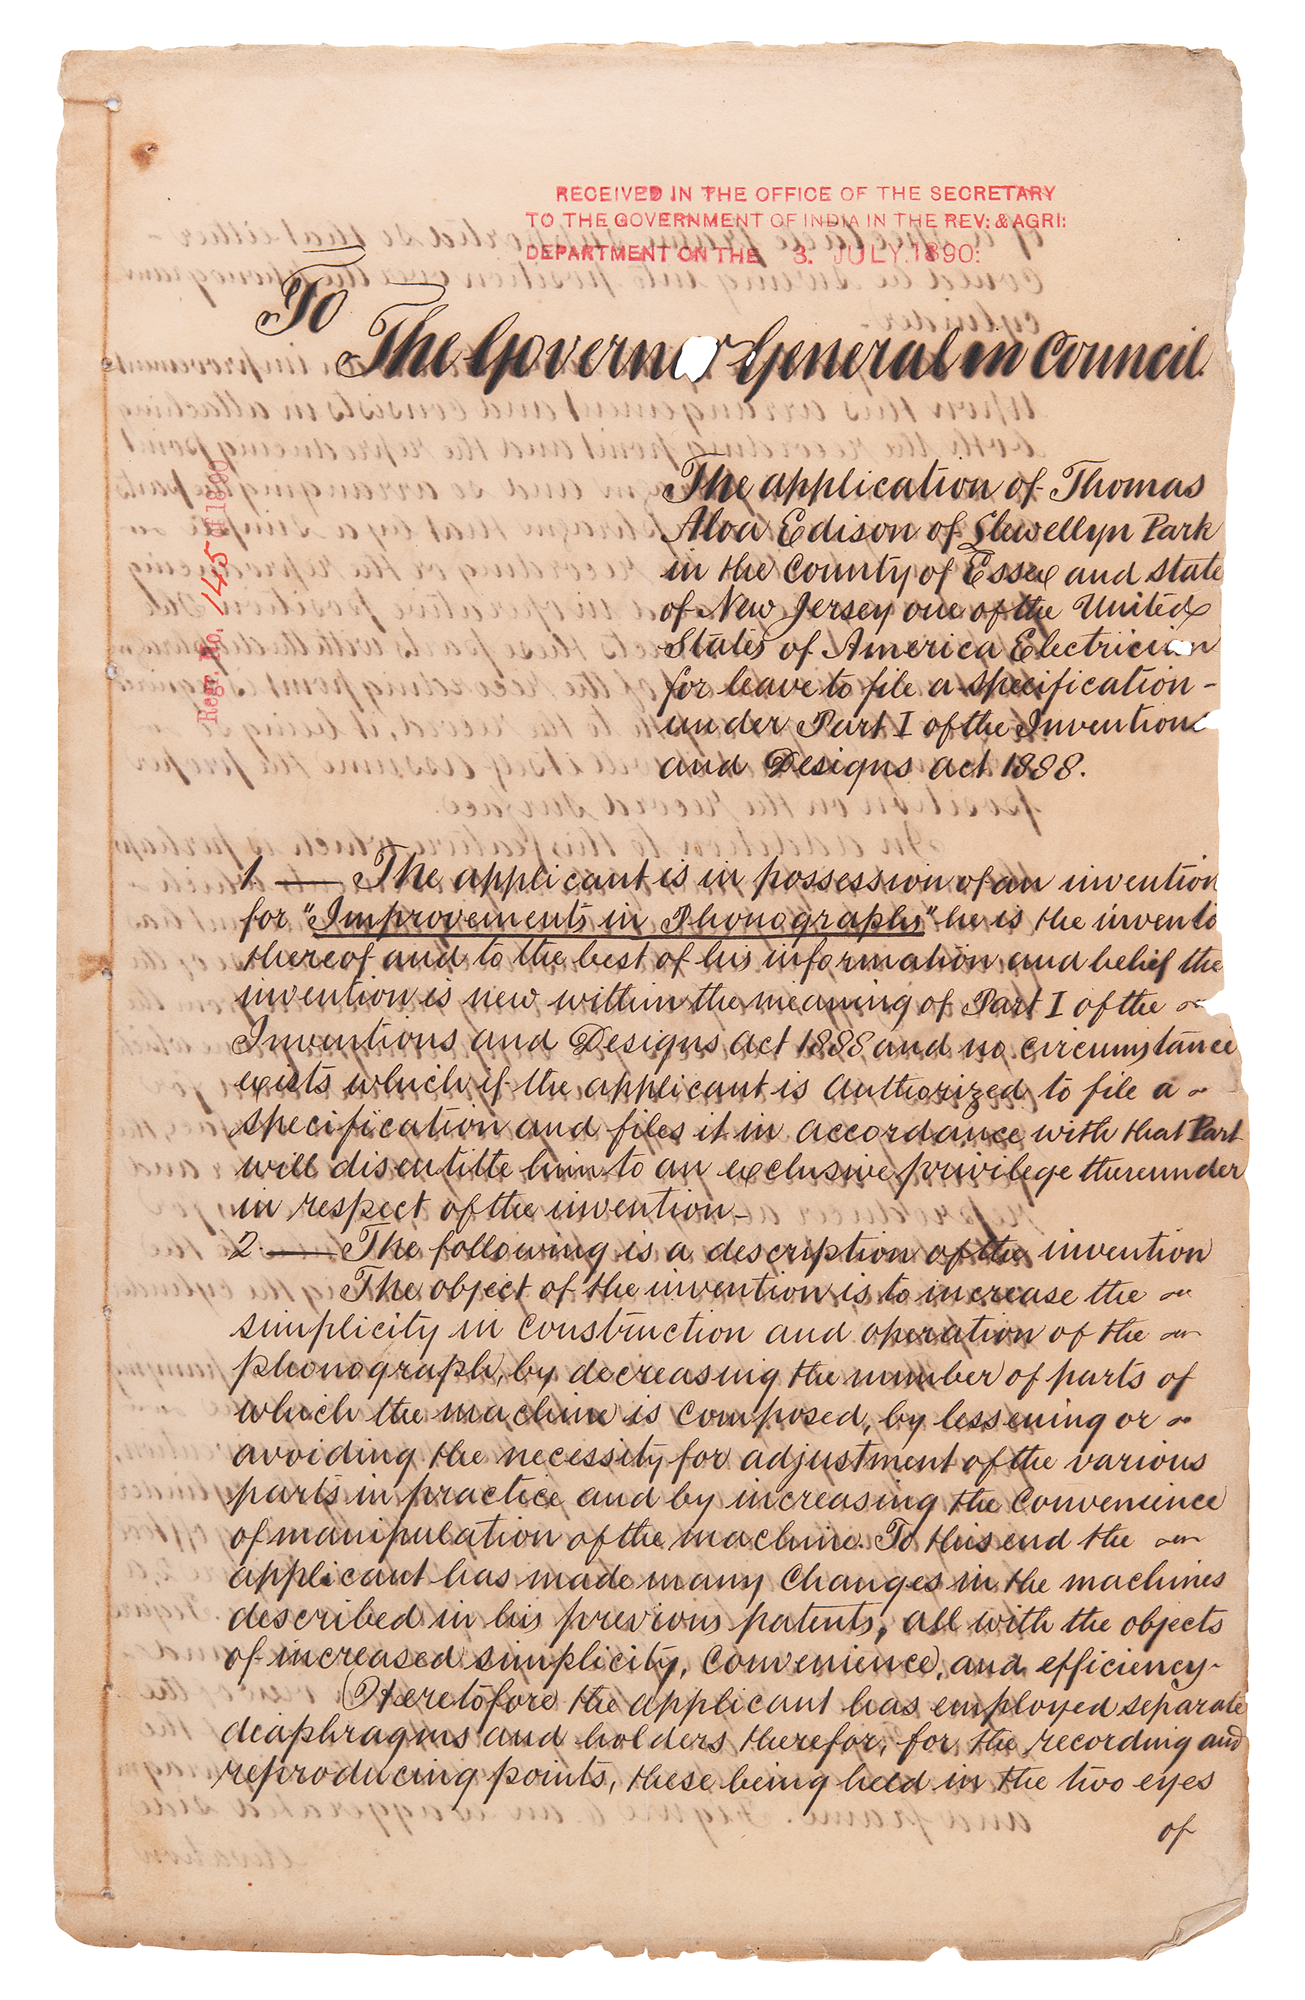 RECEIVED IN THE OFFICE OF THE SECRETARY
TO THE GOVERNMENT OF INDIA IN THE REV: & AGRI:
DEPARTMENT ON THE 3. JULY. 1890:
To
The Governor General in Council.
Regr. No. 145 of 1890
The application of Thomas
Alva Edison of Llewellyn Park
in the County of Essex and State
of New Jersey one of the United
States of America Electrician
for leave to file a specification -
under Part I of the Inventions
and Designs Act 1888.
1 — The applicant is in possession of an invention
for "Improvements in Phonographs" he is the invento
thereof and to the best of his information and belief the
invention is new within the meaning of Part I of the
Inventions and Designs Act 1888 and no circumstance
exists which if the applicant is authorized to file a
specification and files it in accordance with that Part
will disentitle him to an exclusive privilege thereunder
in respect of the invention -
2. — The following is a description of the invention
The object of the invention is to increase the
simplicity in construction and operation of the
phonograph, by decreasing the number of parts of
which the machine is composed, by lessening or
avoiding the necessity for adjustment of the various
parts in practice and by increasing the convenience
of manipulation of the machine. To this end the
applicant has made many changes in the machines
described in his previous patents, all with the objects
of increased simplicity, convenience, and efficiency-
Heretofore the applicant has employed separate
diaphragms and holders therefor, for the recording and
reproducing points, these being held in the two eyes
of